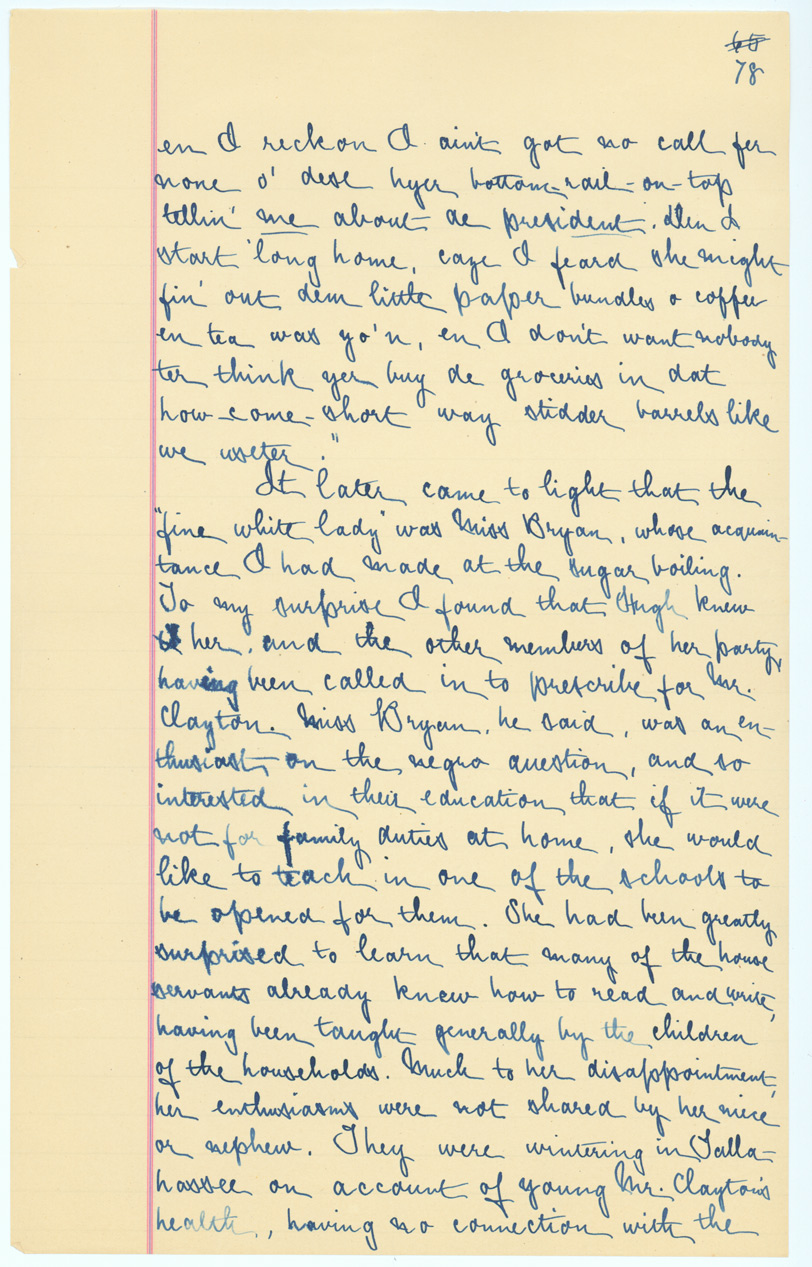 65
78
en I reckon I ain't got no call fer
none o' dese hyer bottom-rail-on-top
tellin' me about de president. Den I
start 'long home, caze I feard she might
fin' out dem little paper bundles o coffee
en tea was yo'n, en I don't want nobody
ter think yer buy de groceries in dat
how-come-short way stidder barrels like
we useter."
It later came to light that the
"fine white lady" was Miss Bryan, whose acquain-
tance I had made at the sugar boiling.
To my surprise I found that Hugh knew
her, and the other members of her party,
having been called in to prescribe for Mr.
Clayton. Miss Bryan, he said, was an en-
thusiast on the negro question, and so
interested in their education that if it were
not for family duties at home, she would
like to teach in one of the schools to
be opened for them. She had been greatly
surprised to learn that many of the house
servants already knew how to read and write,
having been taught generally by the children
of the households. Much to her disappointment,
her enthusiasms were not shared by her niece
or nephew. They were wintering in Talla-
hassee on account of young Mr. Clayton's
health, having no connection with the